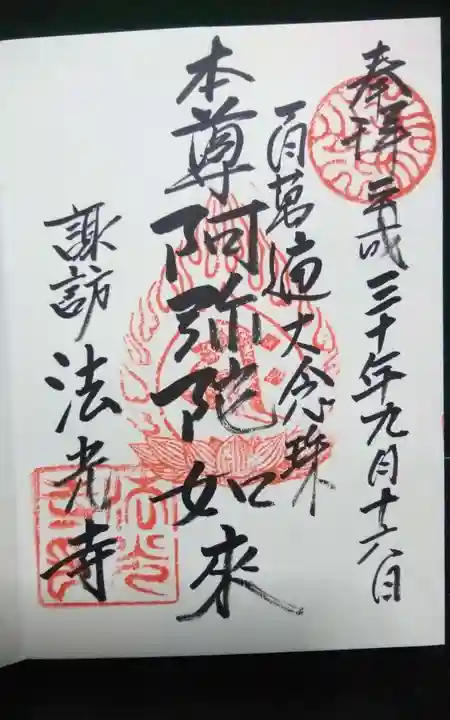 奉拝 平成三十年九月十六日
百萬遍大念珠
本尊阿弥陀如来
諏訪 法光寺